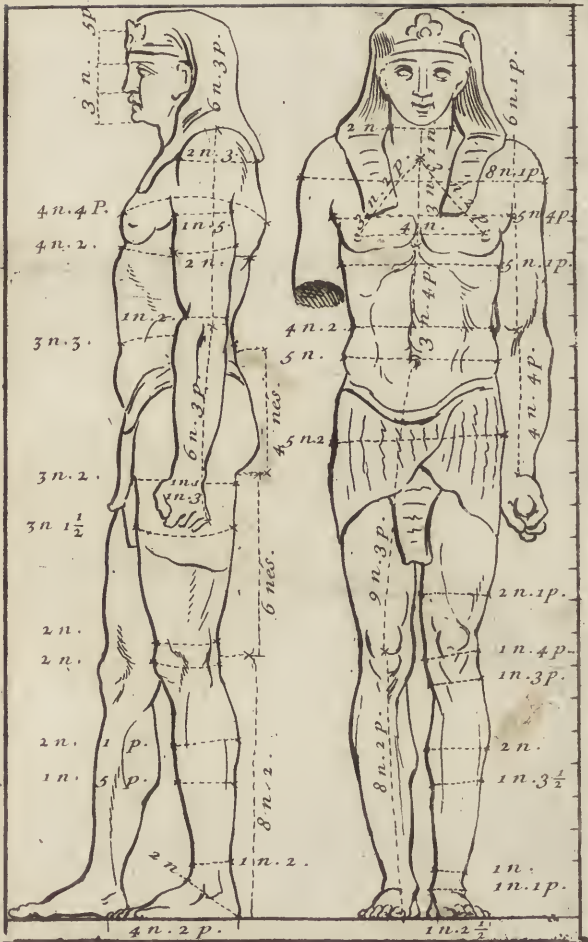 5p.
3 n.
6 n. 3 p.
2 n. 3.
4 n. 4 P.
1 n. 5
4 n. 2.
2 n.
1 n. 2
3 n. 3.
6 n. 3 p.
4 nes.
3 n. 2.
1 n. 3.
3 n 1 1/2
6 nes.
2 n.
2 n.
2 n. 1 p.
1 n. 5 p.
8 n. 2.
2 n
1 n. 2.
4 n. 2 p.
6 n. 1 p.
2 n
1 n
2 p.
3 n.
8 n. 1 p.
5 n 4 p.
4 n.
5 n. 1 p.
3 n. 4 p.
4 n. 2
5 n.
4 n. 4 p.
5 n. 2
9 n. 3 p.
2 n. 1 p.
1 n. 4 p.
1 n. 3 p.
8 n. 2 p.
2 n.
1 n. 3 1/2
1 n.
1 n. 1 p.
1 n. 2 1/2